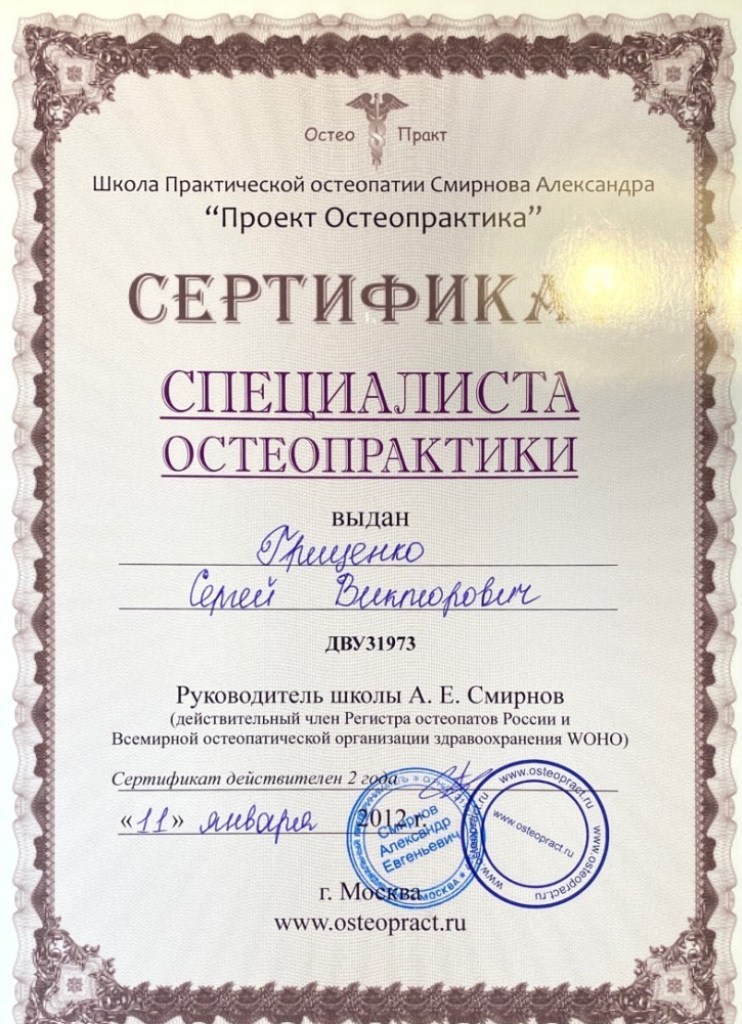 Остео Практ
Школа Практической остеопатии Смирнова Александра
“Проект Остеопрактика”
СЕРТИФИКА
СПЕЦИАЛИСТА
ОСТЕОПРАКТИКИ
выдан
Грищенко
Сергей Викторович
ДВУ31973
Руководитель школы А. Е. Смирнов
(действительный член Регистра остеопатов России и
Всемирной остеопатической организации здравоохранения WOHO)
Сертификат действителен 2 года
«11» января 2012 г.
Смирнов
Александр
Евгеньевич
МОСКВА
www.osteopract.ru
www.osteopract.ru
www.osteopract.ru
г. Москва
www.osteopract.ru